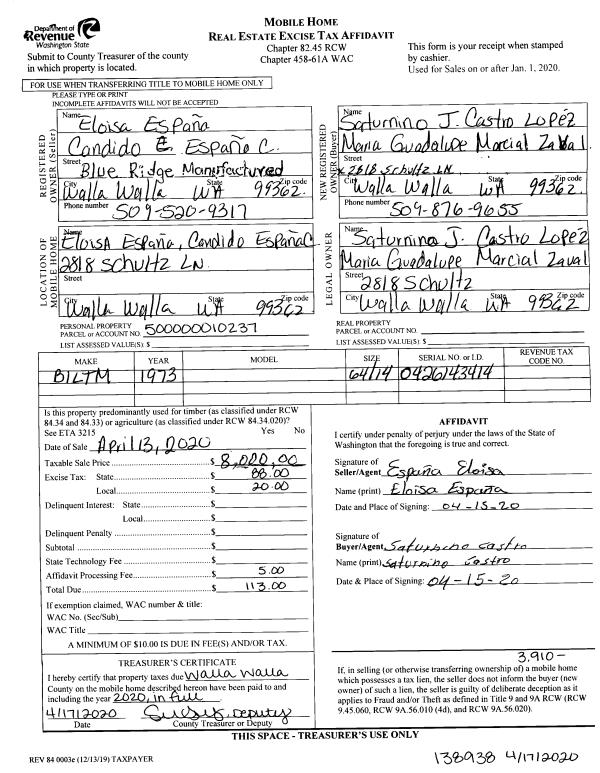 Department of
Revenue
Washington State
MOBILE HOME
REAL ESTATE EXCISE TAX AFFIDAVIT
Chapter 82.45 RCW
Chapter 458-61A WAC
Submit to County Treasurer of the county
in which property is located.
This form is your receipt when stamped
by cashier.
Used for Sales on or after Jan. 1, 2020.
FOR USE WHEN TRANSFERRING TITLE TO MOBILE HOME ONLY
PLEASE TYPE OR PRINT
INCOMPLETE AFFIDAVITS WILL NOT BE ACCEPTED
REGISTERED OWNER (Seller)
Name Eloisa España
Candido E. España C.
Street Blue Ridge Manufactured
City Walla Walla State WA 99362 Zip code
Phone number 509-520-9317
NEW REGISTERED OWNER (Buyer)
Name Saturnino J. Castro Lopéz
Maria Guadalupe Marcial Zaval
Street x 2818 Schultz LN
City Walla Walla State WA 99362 Zip code
Phone number 509-876-9655
LOCATION OF MOBILE HOME
Name Eloisa España, Candido España C
2818 Schultz LN.
Street
City Walla Walla State WA 99362 Zip code
LEGAL OWNER
Name Saturnino J. Castro Lopéz
Maria Guadalupe Marcial Zaval
Street 2818 Schultz
City Walla Walla State WA 99362 Zip code
PERSONAL PROPERTY
PARCEL or ACCOUNT NO. 500000010237
LIST ASSESSED VALUE(S): $
REAL PROPERTY
PARCEL or ACCOUNT NO.
LIST ASSESSED VALUE(S): $
MAKE YEAR MODEL SIZE SERIAL NO. or I.D. REVENUE TAX CODE NO.
BILTM 1973 64/14 0426143414
Is this property predominantly used for timber (as classified under RCW
84.34 and 84.33) or agriculture (as classified under RCW 84.34.020)?
See ETA 3215 Yes No
Date of Sale April 13, 2020
Taxable Sale Price $ 8,000.00
Excise Tax: State $ 88.00
Local $ 20.00
Delinquent Interest: State $
Local $
Delinquent Penalty $
Subtotal $
State Technology Fee $
Affidavit Processing Fee $ 5.00
Total Due $ 113.00
If exemption claimed, WAC number & title:
WAC No. (Sec/Sub)
WAC Title
A MINIMUM OF $10.00 IS DUE IN FEE(S) AND/OR TAX.
AFFIDAVIT
I certify under penalty of perjury under the laws of the State of
Washington that the foregoing is true and correct.
Signature of
Seller/Agent España Eloisa
Name (print) Eloisa España
Date and Place of Signing: 04-15-20
Signature of
Buyer/Agent Saturnino castro
Name (print) saturnino Castro
Date & Place of Signing: 04-15-20
TREASURER'S CERTIFICATE
I hereby certify that property taxes due Walla Walla
County on the mobile home described hereon have been paid to and
including the year 2020, in full
4/17/2020 , Deputy
Date County Treasurer or Deputy
3,910-
If, in selling (or otherwise transferring ownership of) a mobile home
which possesses a tax lien, the seller does not inform the buyer (new
owner) of such a lien, the seller is guilty of deliberate deception as it
applies to Fraud and/or Theft as defined in Title 9 and 9A RCW (RCW
9.45.060, RCW 9A.56.010 (4d), and RCW 9A.56.020).
THIS SPACE - TREASURER'S USE ONLY
REV 84 0003e (12/13/19) TAXPAYER
138938 4/17/2020